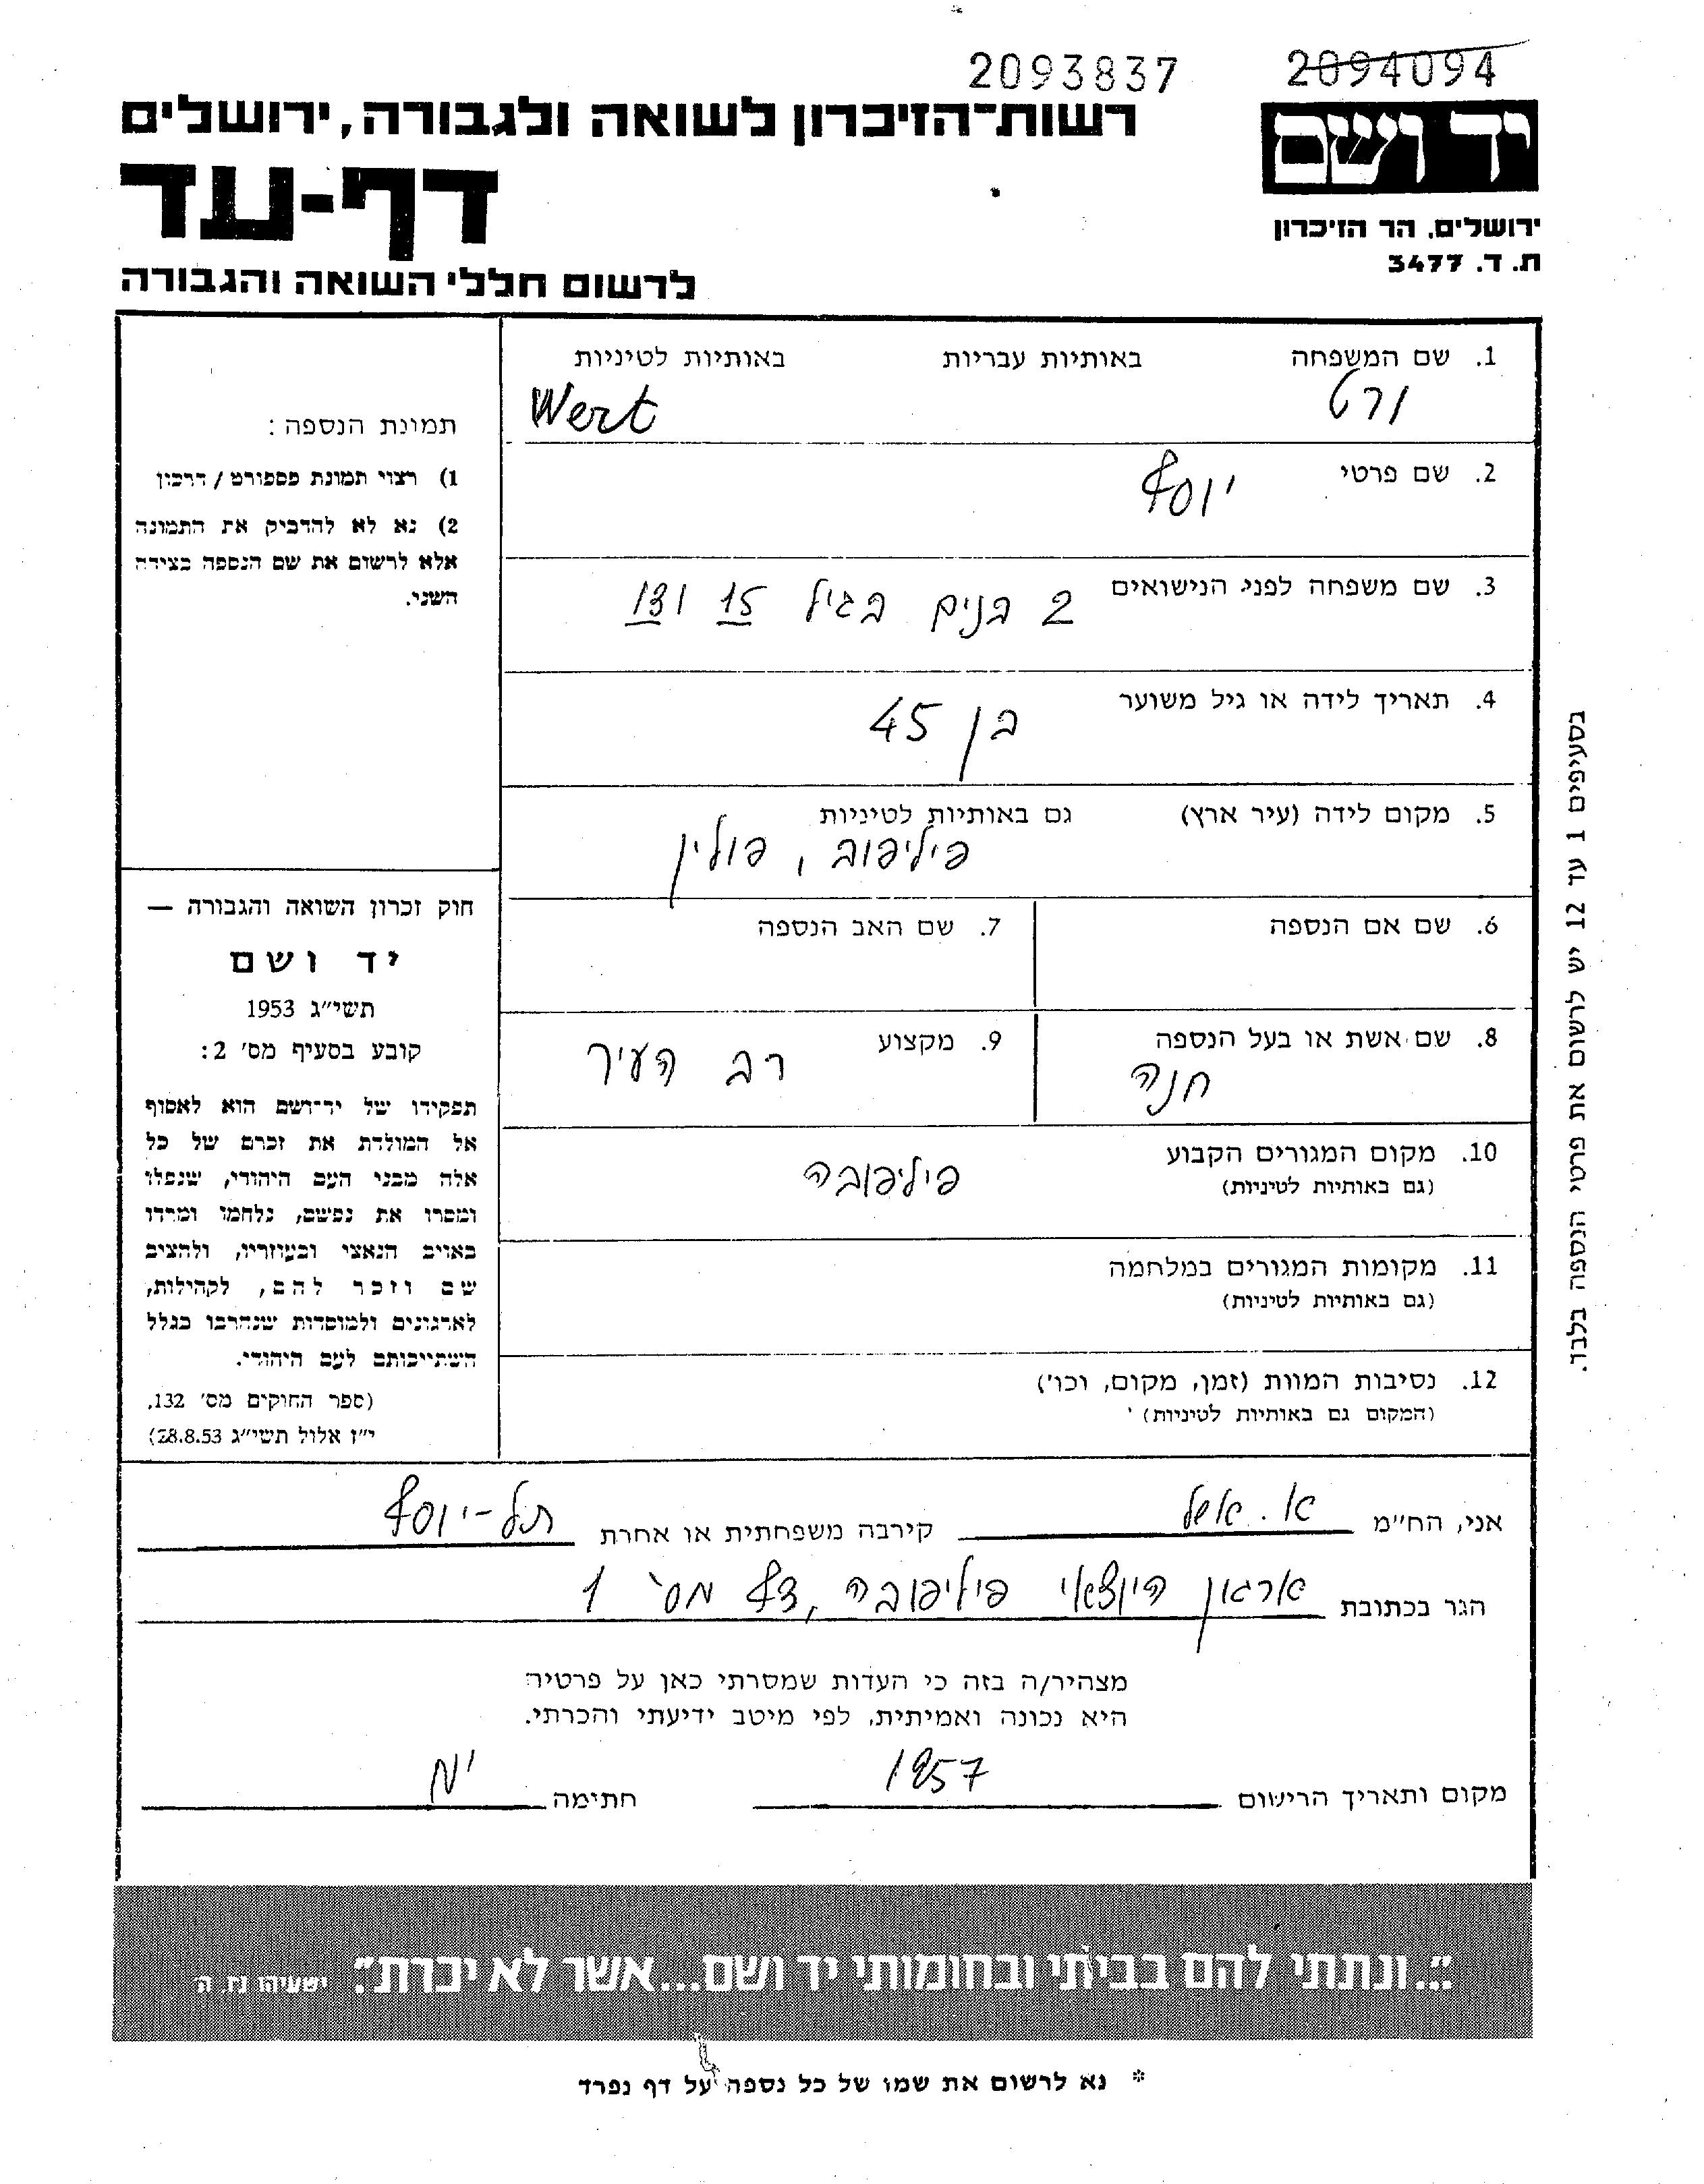 2093837 2094094
רשות־הזיכרון לשואה ולגבורה, ירושלים
יד ושם
דף-עד
ירושלים, הר הזיכרון
ת. ד. 3477
לרשום חללי השואה והגבורה
1. שם המשפחה באותיות עבריות באותיות לטיניות
ורט Wert
2. שם פרטי יוסף
3. שם משפחה לפני הנישואים 2 בנים בגיל 15 ו13
4. תאריך לידה או גיל משוער
בן 45
5. מקום לידה (עיר ארץ) גם באותיות לטיניות
פיליפוב, פולין
6. שם אם הנספה
7. שם האב הנספה
8. שם אשת או בעל הנספה
חנה
9. מקצוע רב העיר
10. מקום המגורים הקבוע
(גם באותיות לטיניות)
פיליפובה
11. מקומות המגורים במלחמה
(גם באותיות לטיניות)
12. נסיבות המוות (זמן, מקום, וכו')
(המקום גם באותיות לטיניות)
תמונת הנספה:
1) רצוי תמונת פספורט / דרכון
2) נא לא להדביק את התמונה
אלא לרשום את שם הנספה בצידה
השני.
חוק זכרון השואה והגבורה —
יד ושם
תשי"ג 1953
קובע בסעיף מס' 2:
תפקידו של יד־ושם הוא לאסוף
אל המולדת את זכרם של כל
אלה מבני העם היהודי, שנפלו
ומסרו את נפשם, נלחמו ומרדו
באויב הנאצי ובעוזריו, ולהציב
שם וזכר להם, לקהילות,
לארגונים ולמוסדות שנחרבו בגלל
השתייכותם לעם היהודי.
(ספר החוקים מס' 132,
י"ז אלול תשי"ג 28.8.53)
בסעיפים 1 עד 12 יש לרשום את פרטי הנספה בלבד.
אני, הח"מ א. אשל קירבה משפחתית או אחרת תל-יוסף
הגר בכתובת ארגון היוצאי פיליפובה, דף מס' 1
מצהיר/ה בזה כי העדות שמסרתי כאן על פרטיה
היא נכונה ואמיתית, לפי מיטב ידיעתי והכרתי.
מקום ותאריך הרישום 1957 חתימה
"...ונתתי להם בביתי ובחומותי יד ושם...אשר לא יכרת". ישעיהו נו, ה
* נא לרשום את שמו של כל נספה על דף נפרד